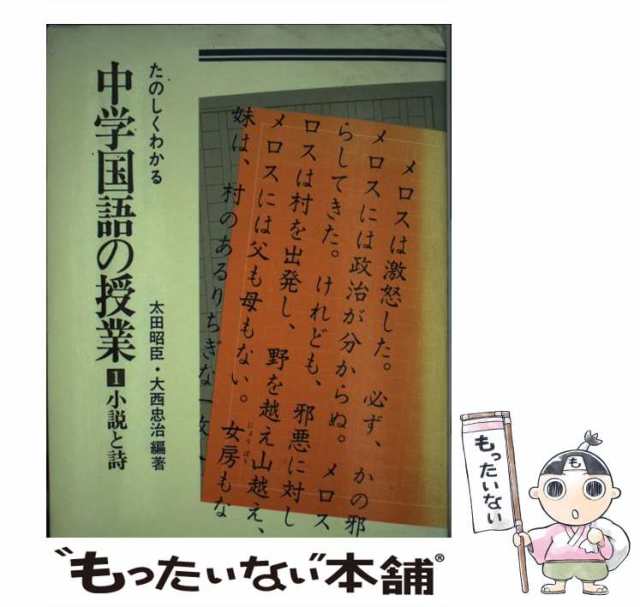 たのしくわかる
中学国語の授業
1 小説と詩
太田昭臣・大西忠治 編著
メロスは激怒した。必ず、かの邪
メロスには政治が分からぬ。メロス
らしてきた。けれども、邪悪に対し
ロスは村を出発し、野を越え山越え、
メロスには父も母もない。女房もな
にょうぼう
妹は、村のあるりちぎな一牧
もったいない
も
“もったいない”本舗®